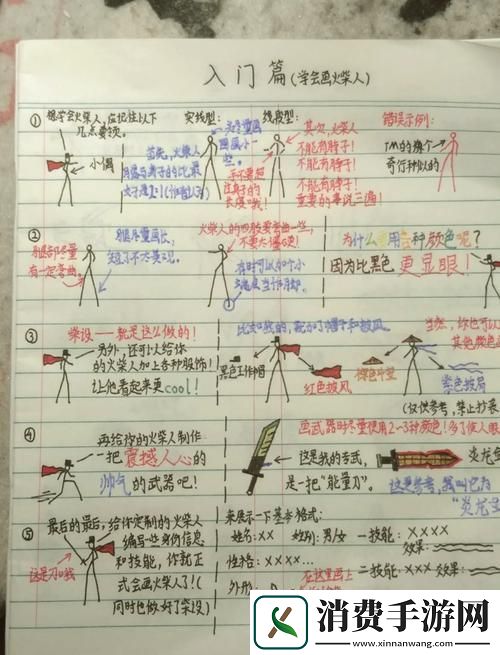 入门篇(学会画火柴人)
① 想学会火柴人,应记住以下
几点要领。
小偶
首先,火柴人
实线型:
线段型:
其次,火柴人
不能有脖子!
不能有脖子!
不能有脖子!
重要的事说三遍!
手不要超
过身子的
长度哦!
错误示例:
TM的像个
奇行种似的
②
腿部尽量
有一定弯曲。
火柴人的四肢要弯曲一些,
有时可以加个小
为什么要用三种颜色呢?
因为比黑色更显眼!
③ 柴设——就是这么做的!
另外,还可以给你
的火柴人加上各种服饰!
让他看起来更cool!
比如我的,就加了帽子和披风。
黑色工作帽
红色披风
棕色斗笠
当然,你也可以
其他颜色
紫色披肩
(仅供参考,禁止抄袭
④ 再给你的火柴人制作
一把震撼人心的
帅气的武器吧!
画武器时尽量使用2~3种颜色!多了使人眼
这是我的专武,
是一把“能量刀”。
炎龙剑
这是参考,我叫它为
“炎龙
⑤ 最后的最后,给你定制的火柴人
编写一些身份信息
和技能,你就正
式会画火柴人了!(
同时也做好了柴设)
这是刀哦
来展示一下基本格式:
姓名:×× 性别:男/女 一技能:××××
效果:
性格:××××…
二技能:××× 效果:
外形:
在这里画上
消费手游网
www.xinnanwang.com